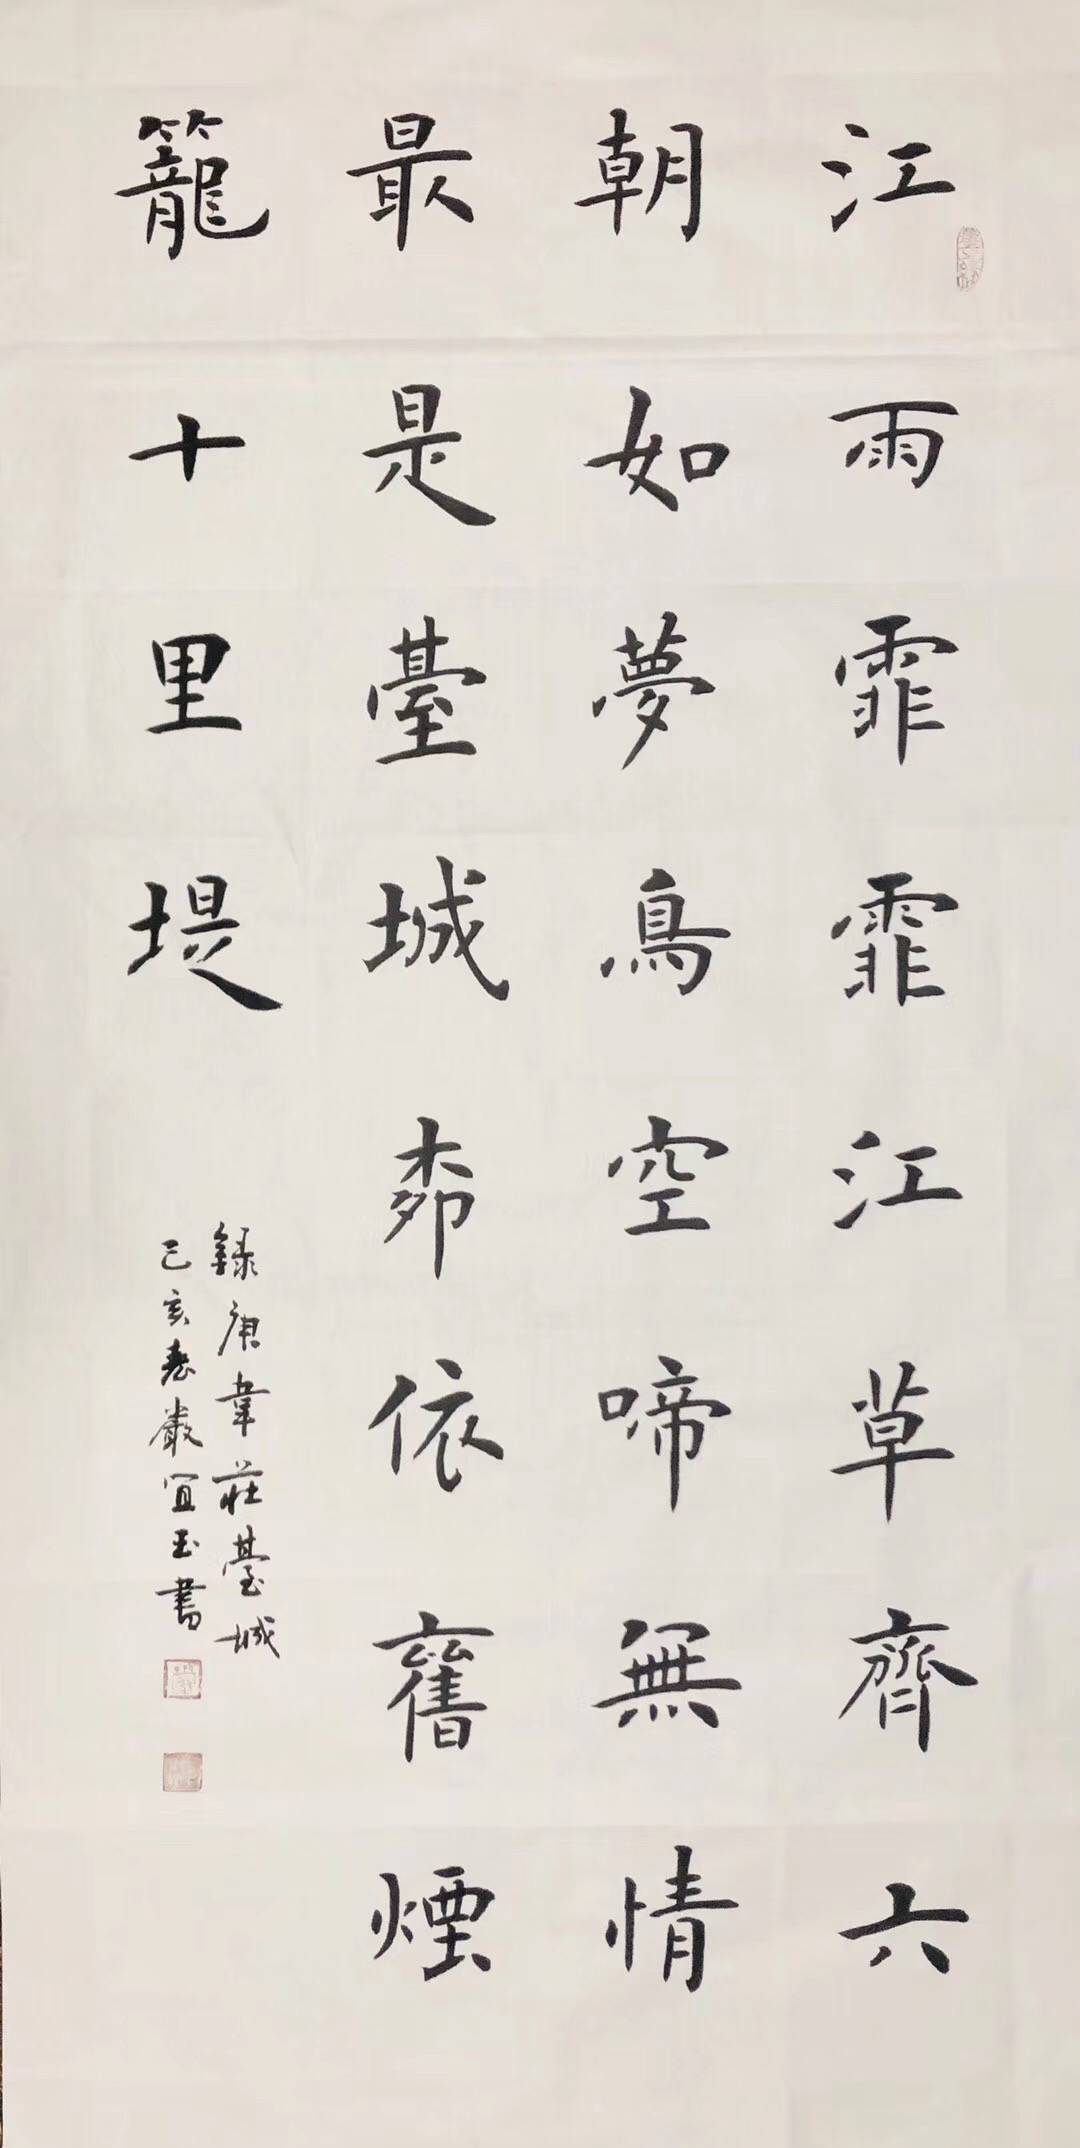 江雨霏霏江草齊六
朝如夢鳥空啼無情
最是臺城桺依舊煙
籠十里堤
錄唐韋莊臺城
己亥春嚴宜玉書